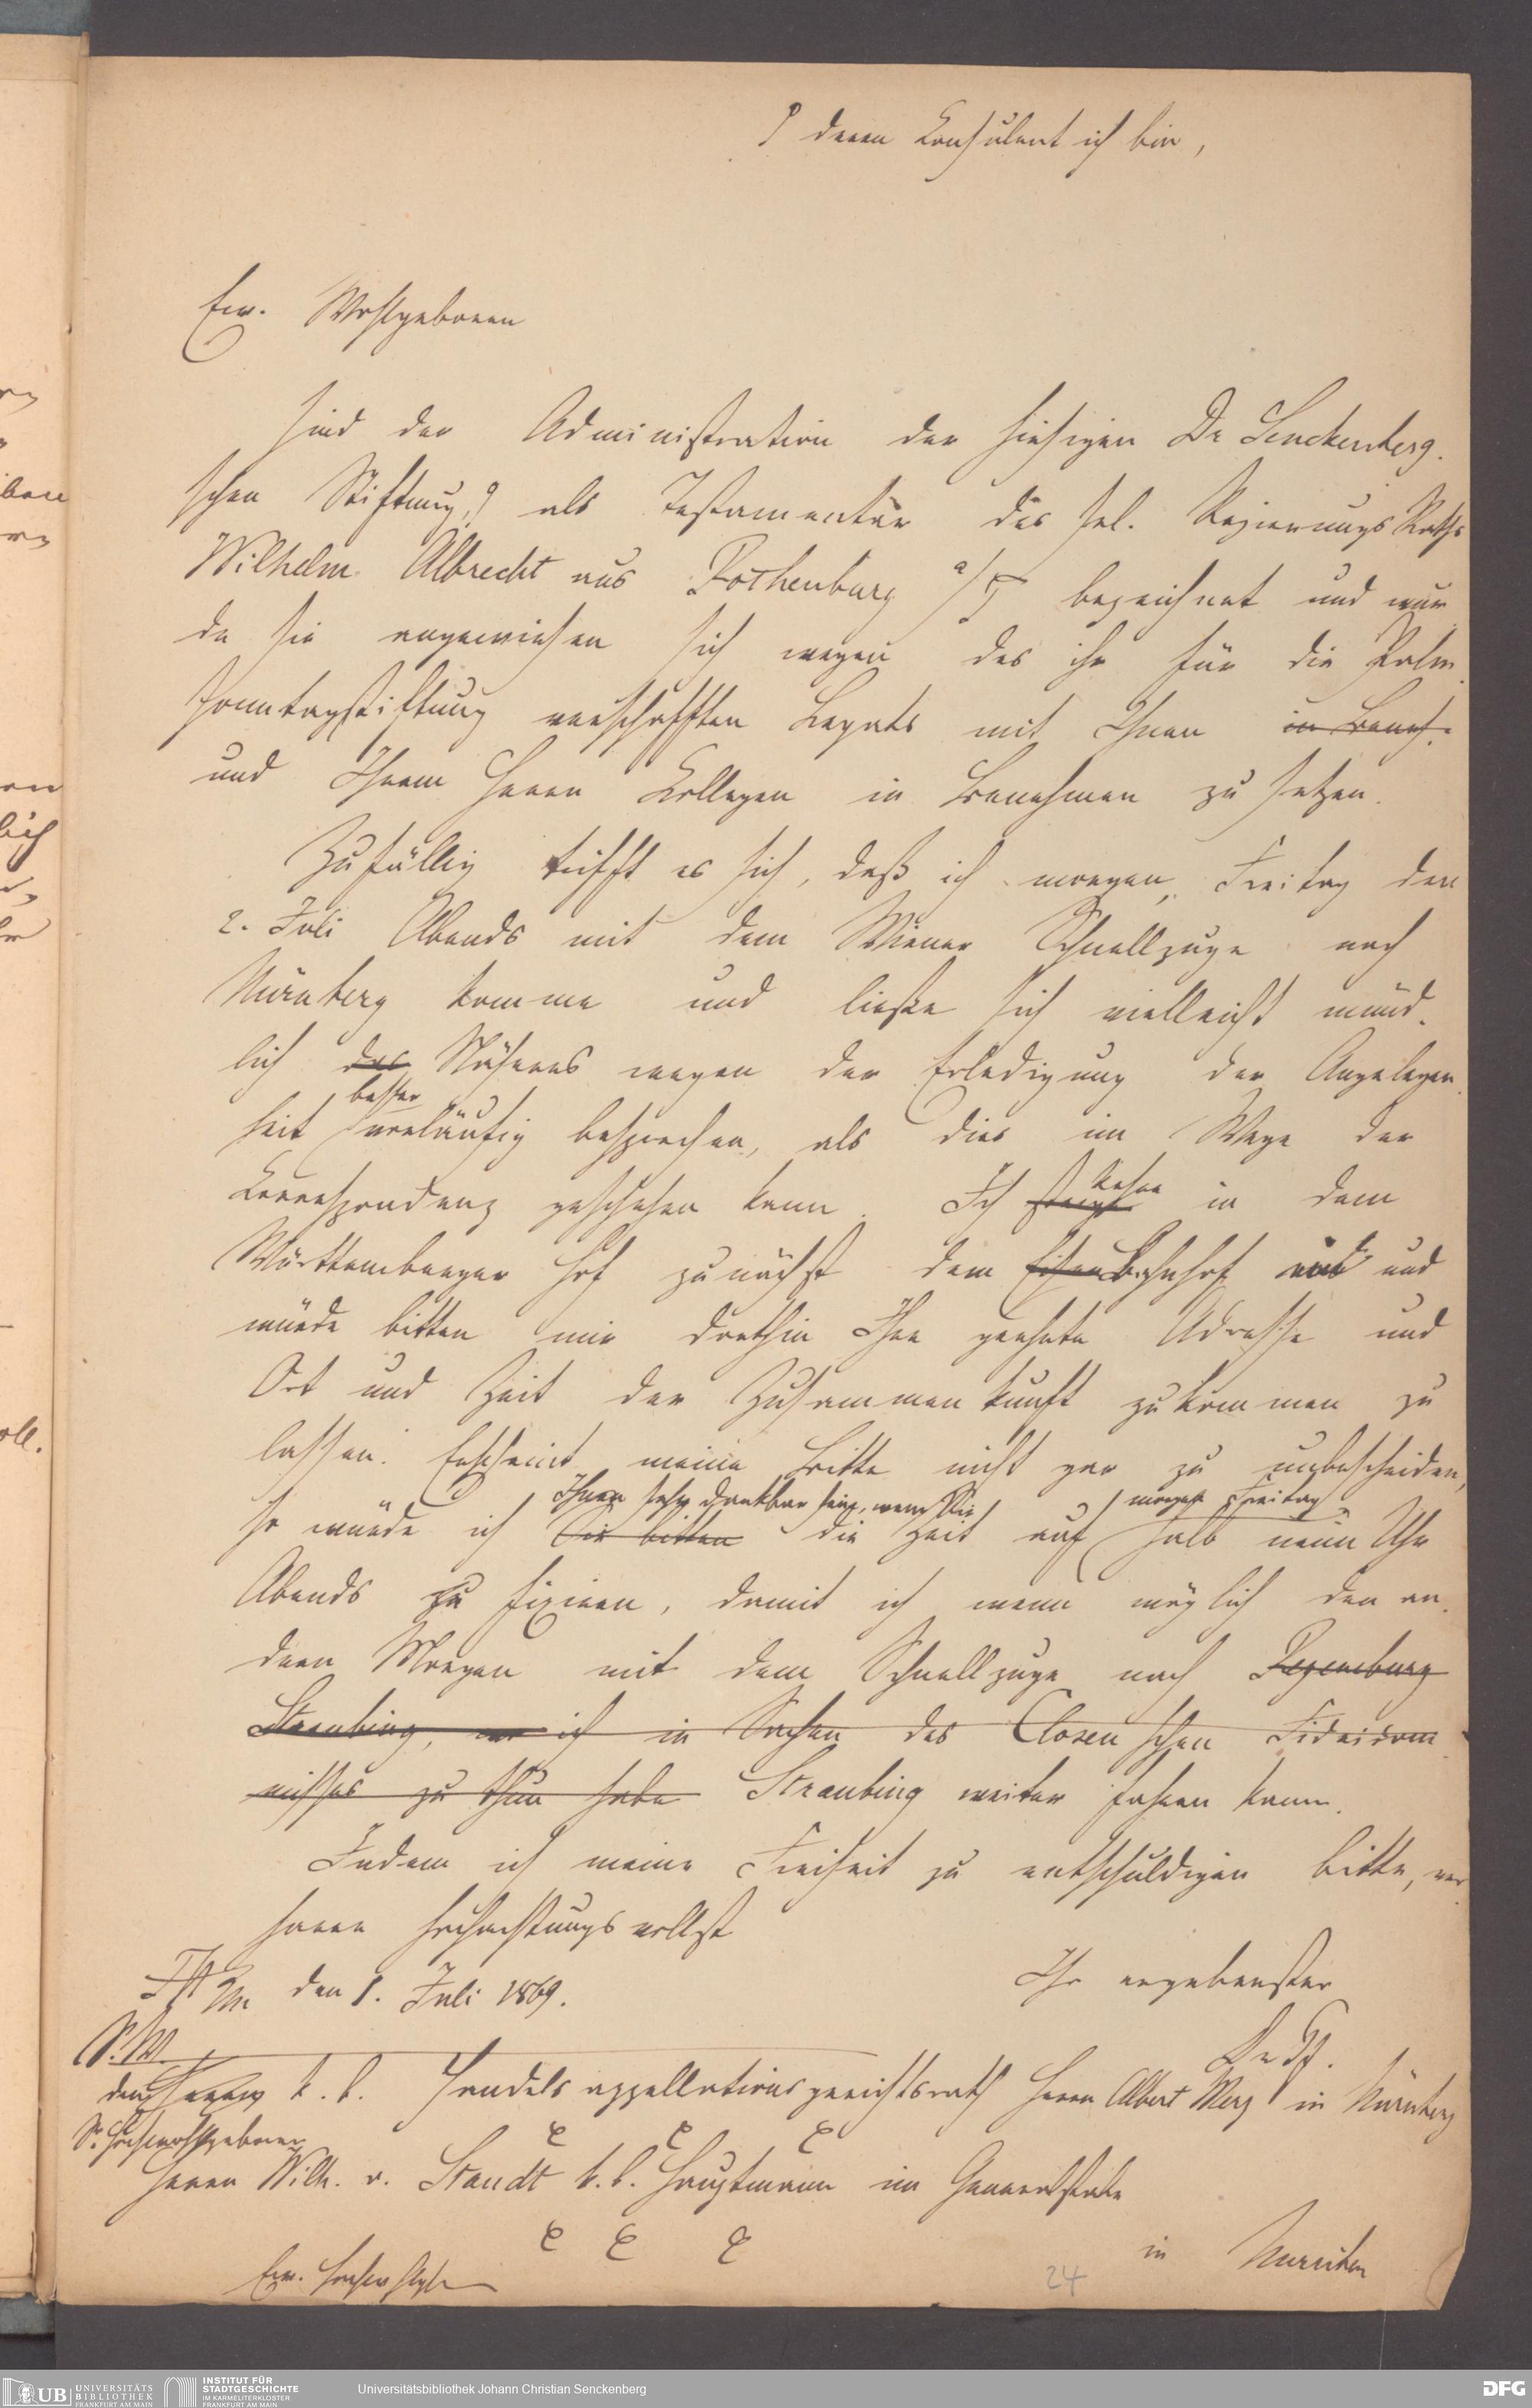 deren Consulent ich bin,
Ew. Wohlgeboren
sind der Administration der hiesigen Dr Senckenberg.
schen Stiftung, als Testamentär des sel. Regierungs Raths
Wilhelm Albrecht aus Rothenburg a/T bezeichnet und wur
de sie angewiesen sich wegen des ihr für die Palm
sonntagstiftung verschafften Legats mit Ihnen in Beneh.
und Ihrem Herrn Collegen in Benehmen zu setzen.
Zufällig trifft es sich, daß ich morgen, Freitag den
2. Juli Abends mit dem Wiener Schnellzuge nach
Nürnberg komme und ließe sich vielleicht münd.
lich das Näheres wegen der Erledigung der Angelegen
besser
heit vorläufig besprechen, als dies im Wege der
Correspondenz geschehen kann. Ich steige in dem
Württemberger Hof zunächst dem Eisenbahnhof und
würde bitten mir dorthin Ihre geehrte Adresse und
Ort und Zeit der Zusammenkunft zukommen zu
lassen. Erscheint meine Bitte nicht gar zu unbescheiden,
Ihnen sehr dankbar sein, wenn Sie morgen Freitag
so würde ich Sie bitten die Zeit auf halb neun Uhr
Abends zu fixiren, damit ich wenn möglich den an.
dern Morgen mit dem Schnellzuge nach Regensburg
Straubing, wo ich in Sachen des Closen schen Fideicom
misses zu thun habe Straubing weiter fahren kann.
Indem ich meine Freiheit zu entschuldigen bitte, ver
harre hochachtungsvollst
Ffm den 1. Juli 1869.
Ihr ergebenster
S. W.
dem Herrn k. b. Handelsappellationsgerichtsrath Herrn Albert Merz in Nürnberg
Sr. Hochwohlgeboren
Herrn Wilh. v. Staudt k. b. Hauptmann im Generalstabe
in München
Ew. Hochwohlgb
24
UB UNIVERSITÄTS
BIBLIOTHEK
FRANKFURT AM MAIN
INSTITUT FÜR
STADTGESCHICHTE
IM KARMELITERKLOSTER
FRANKFURT AM MAIN
Universitätsbibliothek Johann Christian Senckenberg
DFG